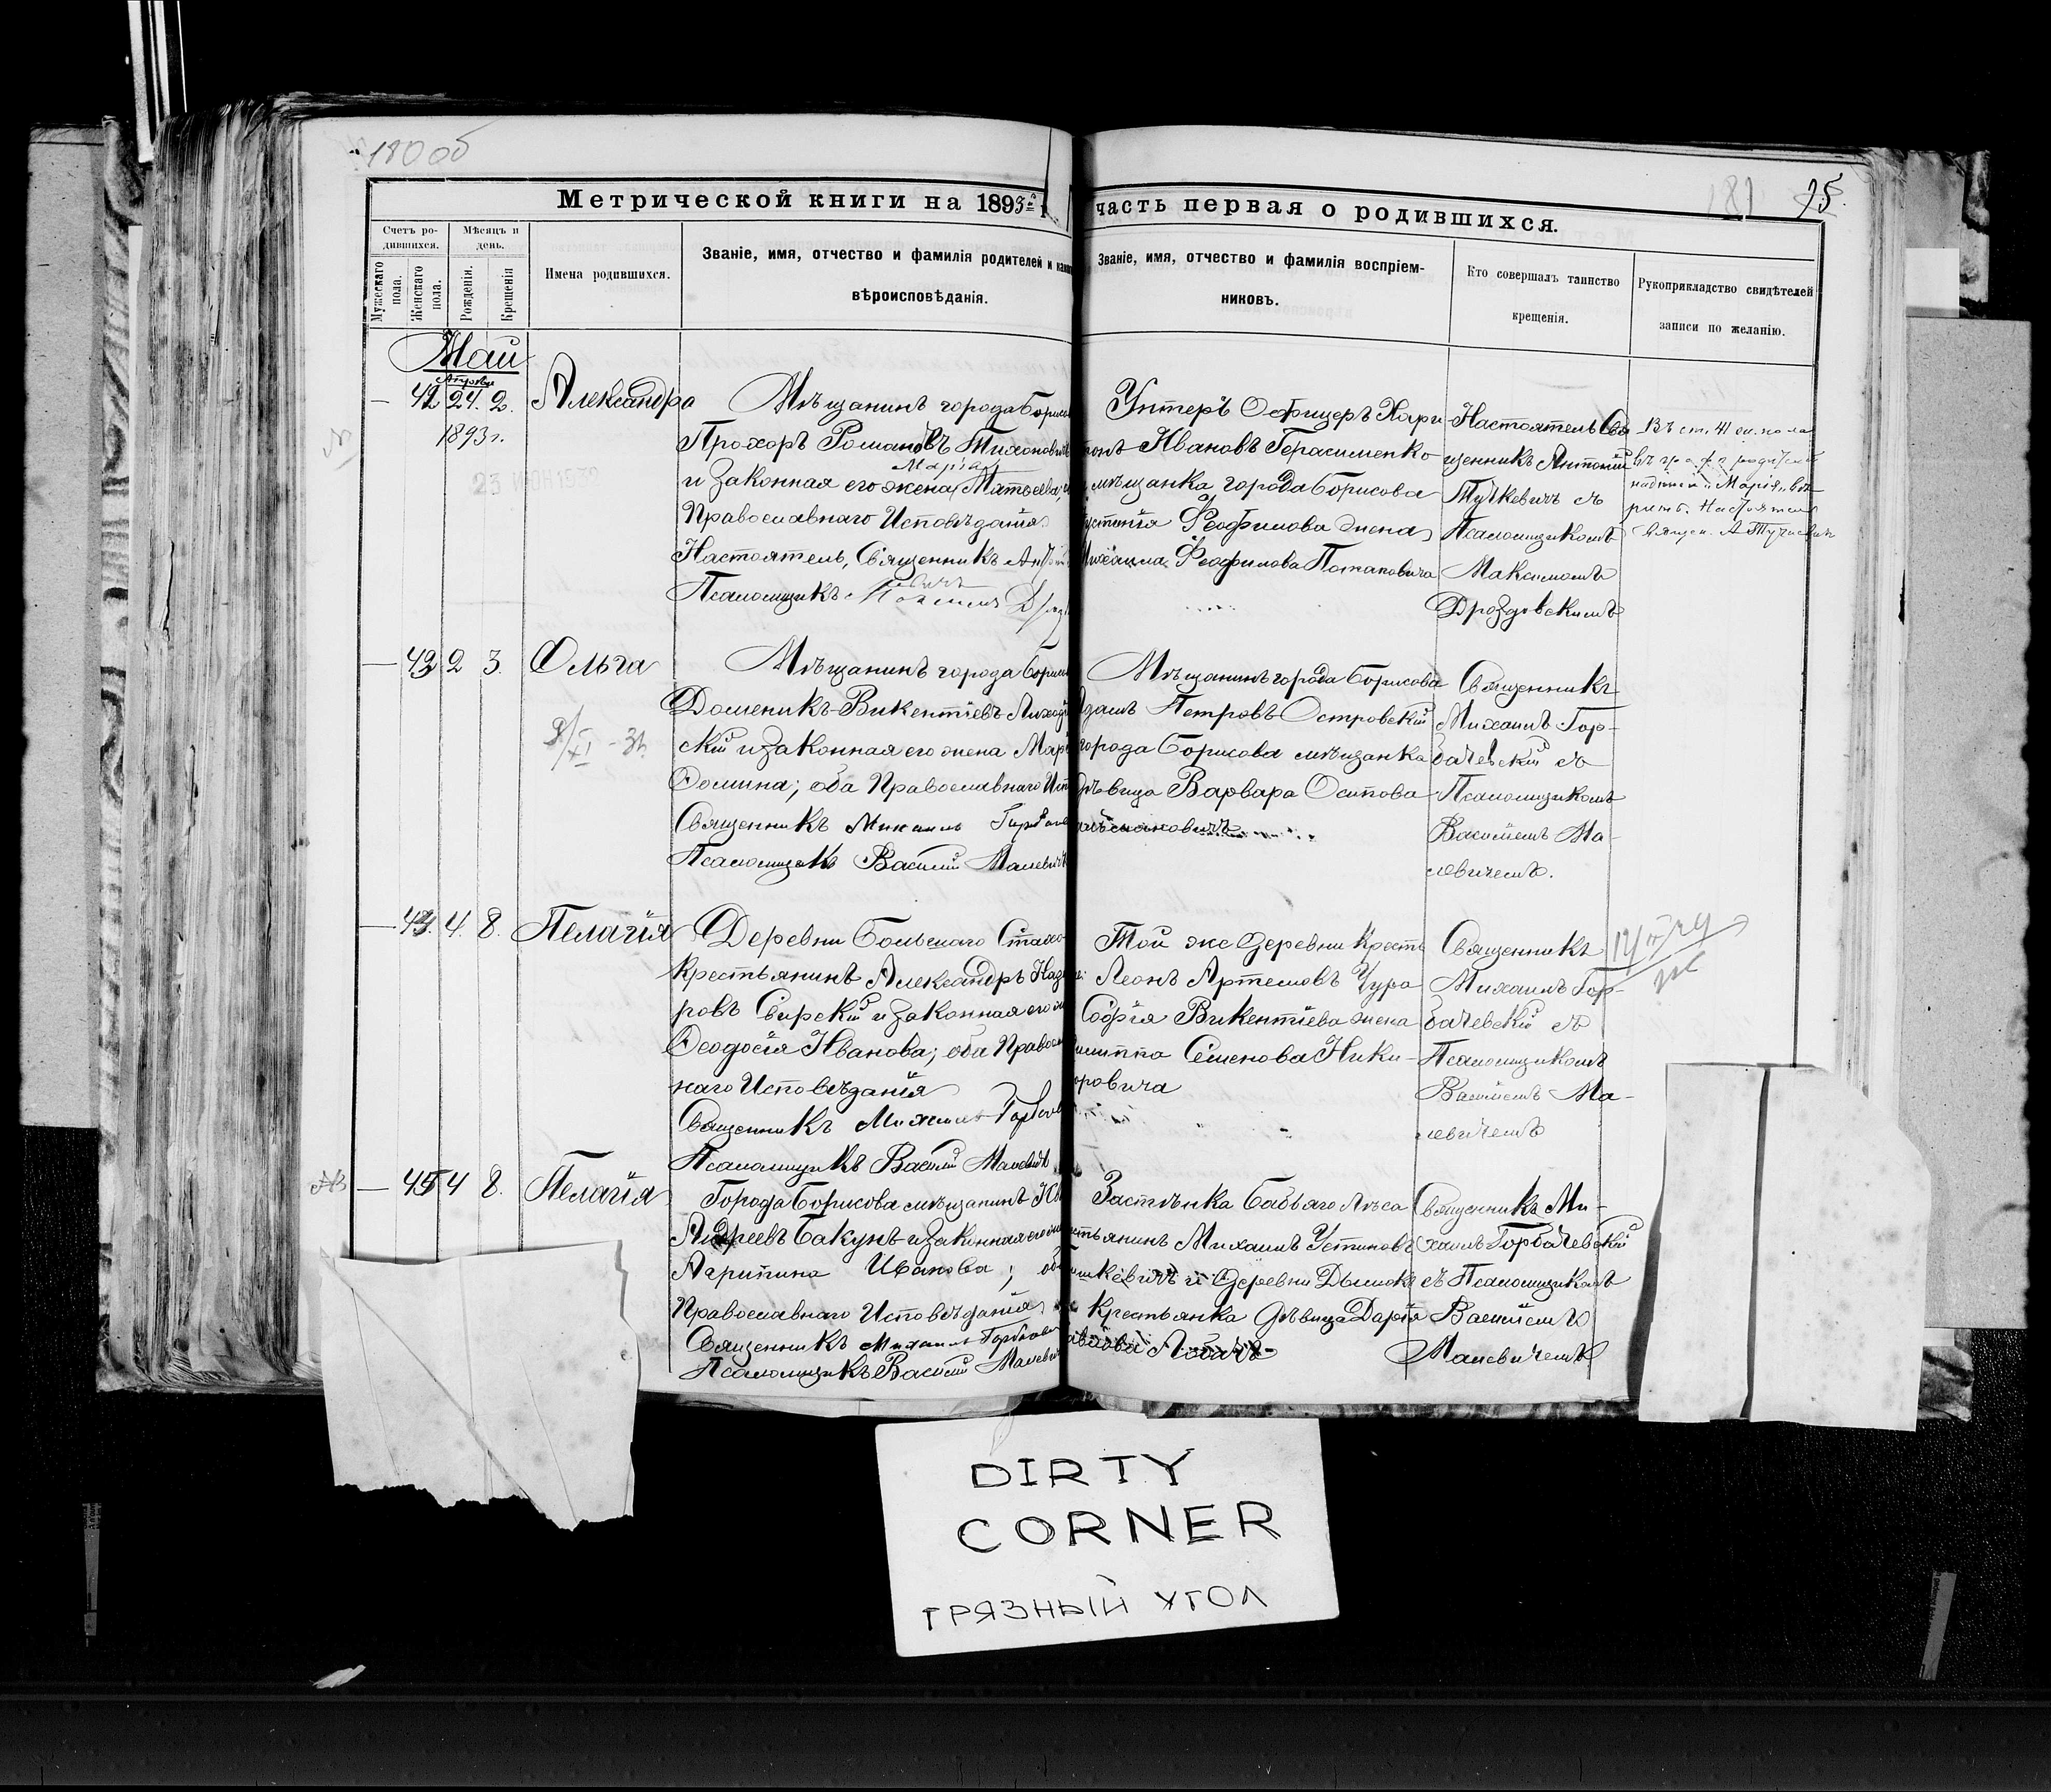 180 об
181 75.
Метрической книги на 1893 г. часть первая о родившихся.
Счетъ родившихся.
Мѣсяцъ и день.
Мужескаго пола.
Женскаго пола.
Рожденія.
Крещенія
Имена родившихся.
Званіе, имя, отчество и фамилія родителей и
вѣроисповѣданія.
Званіе, имя, отчество и фамилія воспріем-
никовъ.
Кто совершалъ таинство
крещенія.
Рукоприкладство свидѣтелей
записи по желанію.
Май
Апрѣля
— 42 24. 2. Александра
1893 г.
23
Мѣщанинъ города Борисо
Прохоръ Романовъ Тихонович
Марія
и законная его жена Матвеева,
Православнаго Исповѣданія
Настоятель, Священникъ
Псаломщикъ
Унтеръ Офицеръ Хари
тонъ Ивановъ Герасименко
мѣщанка города Борисова
Феофилова жена
Феофилова Потаповича
Настоятель Свя
щенникъ Антоній
Тучкевичъ съ
Псаломщикомъ
Максимомъ
Дроздовскимъ
Въ ст. 41
въ графѣ родителей
надпись "Марія" вѣ
рить. Настоятель
Священ. А Тучкевичъ
— 43 2 3. Ольга
Мѣщанинъ города Борисо
Доменикъ Викентіевъ
скій и законная его жена Мар
Фомина; оба Православнаго Исп
Священникъ Михаилъ Горбаче
Псаломщикъ Василій Малевичъ
Мѣщанинъ города Борисова
Адамъ Петровъ Островскій
города Борисова мѣщанка
дѣвица Варвара Осипова
Священникъ
Михаилъ Гор-
бачевскій съ
Псаломщикомъ
Василіемъ Ма-
левичемъ.
— 44. 4. 8. Пелагія
Деревни Большого Стахо
крестьянинъ Александръ Наза
ровъ Сирскій и законная его ж
Феодосія Иванова; оба Правосл
наго Исповѣданія
Священникъ Михаилъ Горбаче
Псаломщикъ Василій Малевичъ
Той же деревни крестъ
Леонъ Артемовъ Чура
Софія Викентіева жена
Филиппа Семенова Ники-
форовича
Священникъ
Михаилъ Гор-
бачевскій съ
Псаломщикомъ
Василіемъ Ма-
левичемъ
— 45 4 8. Пелагія
Города Борисова мѣщанинъ
Андреевъ Бакунъ и законная его
Агрипина Иванова; об
Православнаго Исповѣданія
Священникъ Михаилъ Горбаче
Псаломщикъ Василій Малевич
Застѣнка Бабьяго Лѣса
стьянинъ Михаилъ Устиновъ
и деревни Дымокъ
крестьянка дѣвица Дарія
Лобачъ
Священникъ Ми-
хаилъ Горбачевскій
съ Псаломщикомъ
Василіемъ
Малевичемъ
DIRTY
CORNER
ГРЯЗНЫЙ УГОЛ